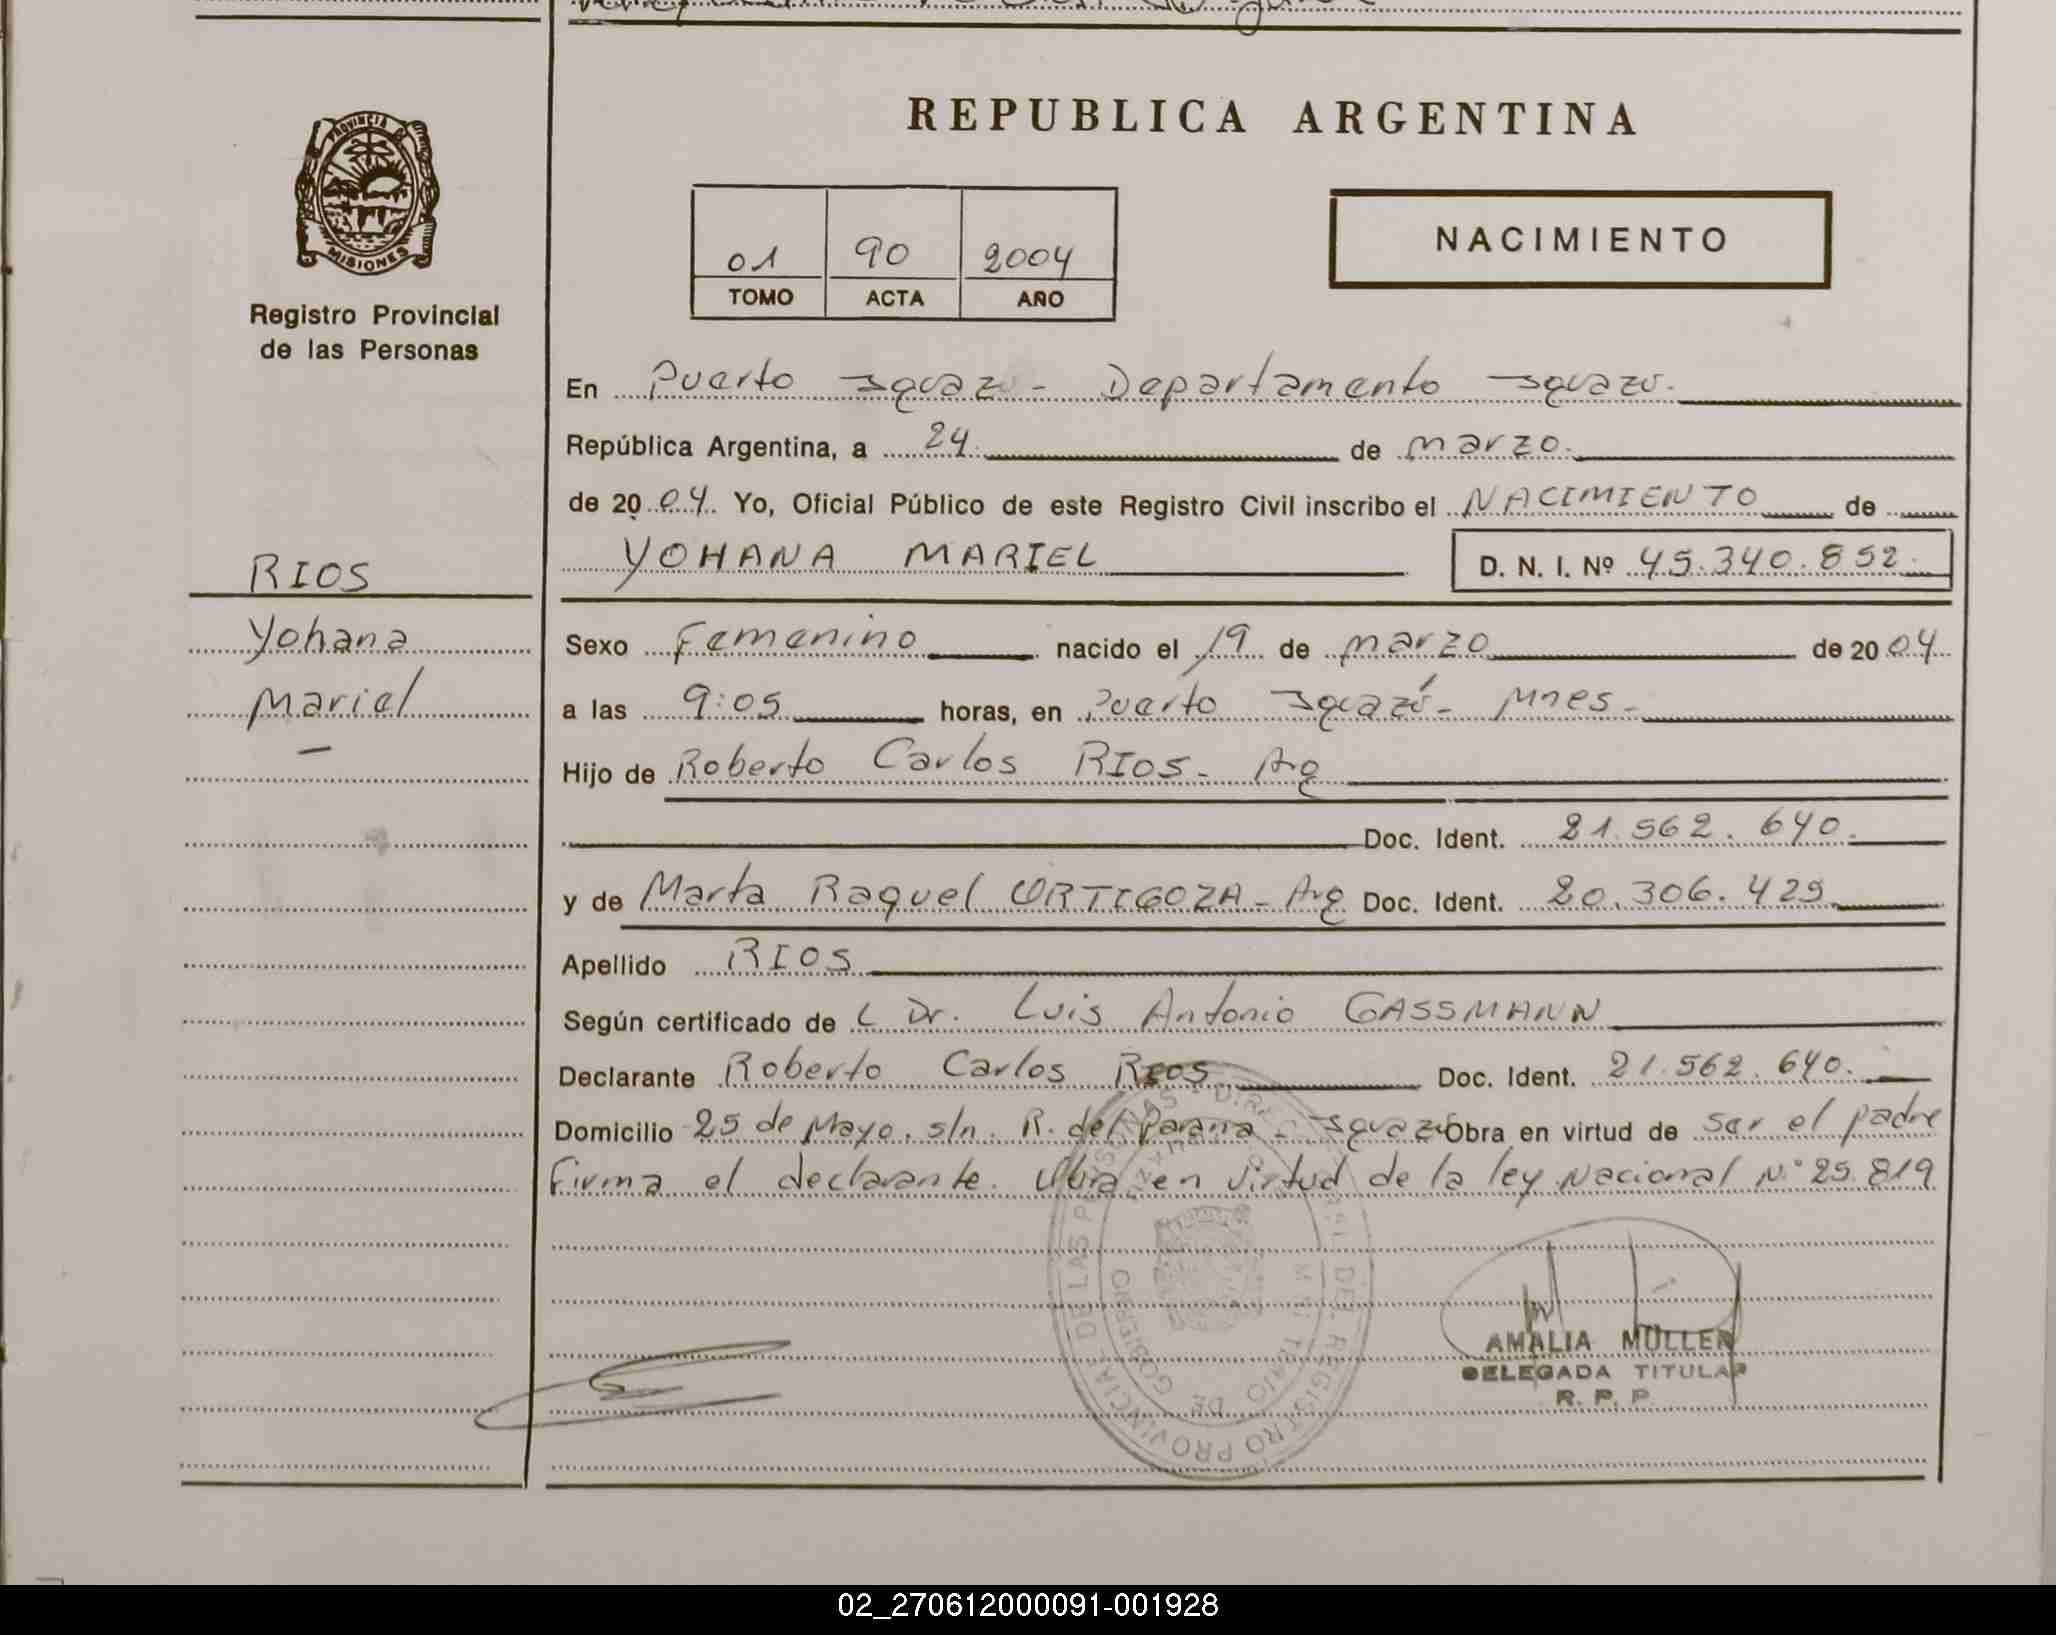 REPUBLICA ARGENTINA
PROVINCIA DE
MISIONES
Registro Provincial
de las Personas
01 90 2004
TOMO ACTA AÑO
NACIMIENTO
En Puerto Iguazú - Departamento Iguazú.
República Argentina, a 24 de marzo.
de 2004. Yo, Oficial Público de este Registro Civil inscribo el NACIMIENTO de
YOHANA MARIEL D. N. I. Nº 45.340.852.
RIOS
Yohana
Mariel
Sexo Femenino nacido el 19 de marzo de 2004
a las 9:05 horas, en Puerto Iguazú - Mnes -
Hijo de Roberto Carlos RIOS - Arg
Doc. Ident. 21.562.640.
y de Marta Raquel ORTIGOZA - Arg Doc. Ident. 20.306.429.
Apellido RIOS
Según certificado de L Dr. Luis Antonio GASSMANN
Declarante Roberto Carlos RIOS Doc. Ident. 21.562.640.
Domicilio 25 de Mayo. s/n. R. del Parana - Iguazú Obra en virtud de ser el padre
Firma el declarante. Obra en virtud de la ley Nacional N° 25.819
AMALIA MULLER
DELEGADA TITULAR
R. P. P.
02_270612000091-001928